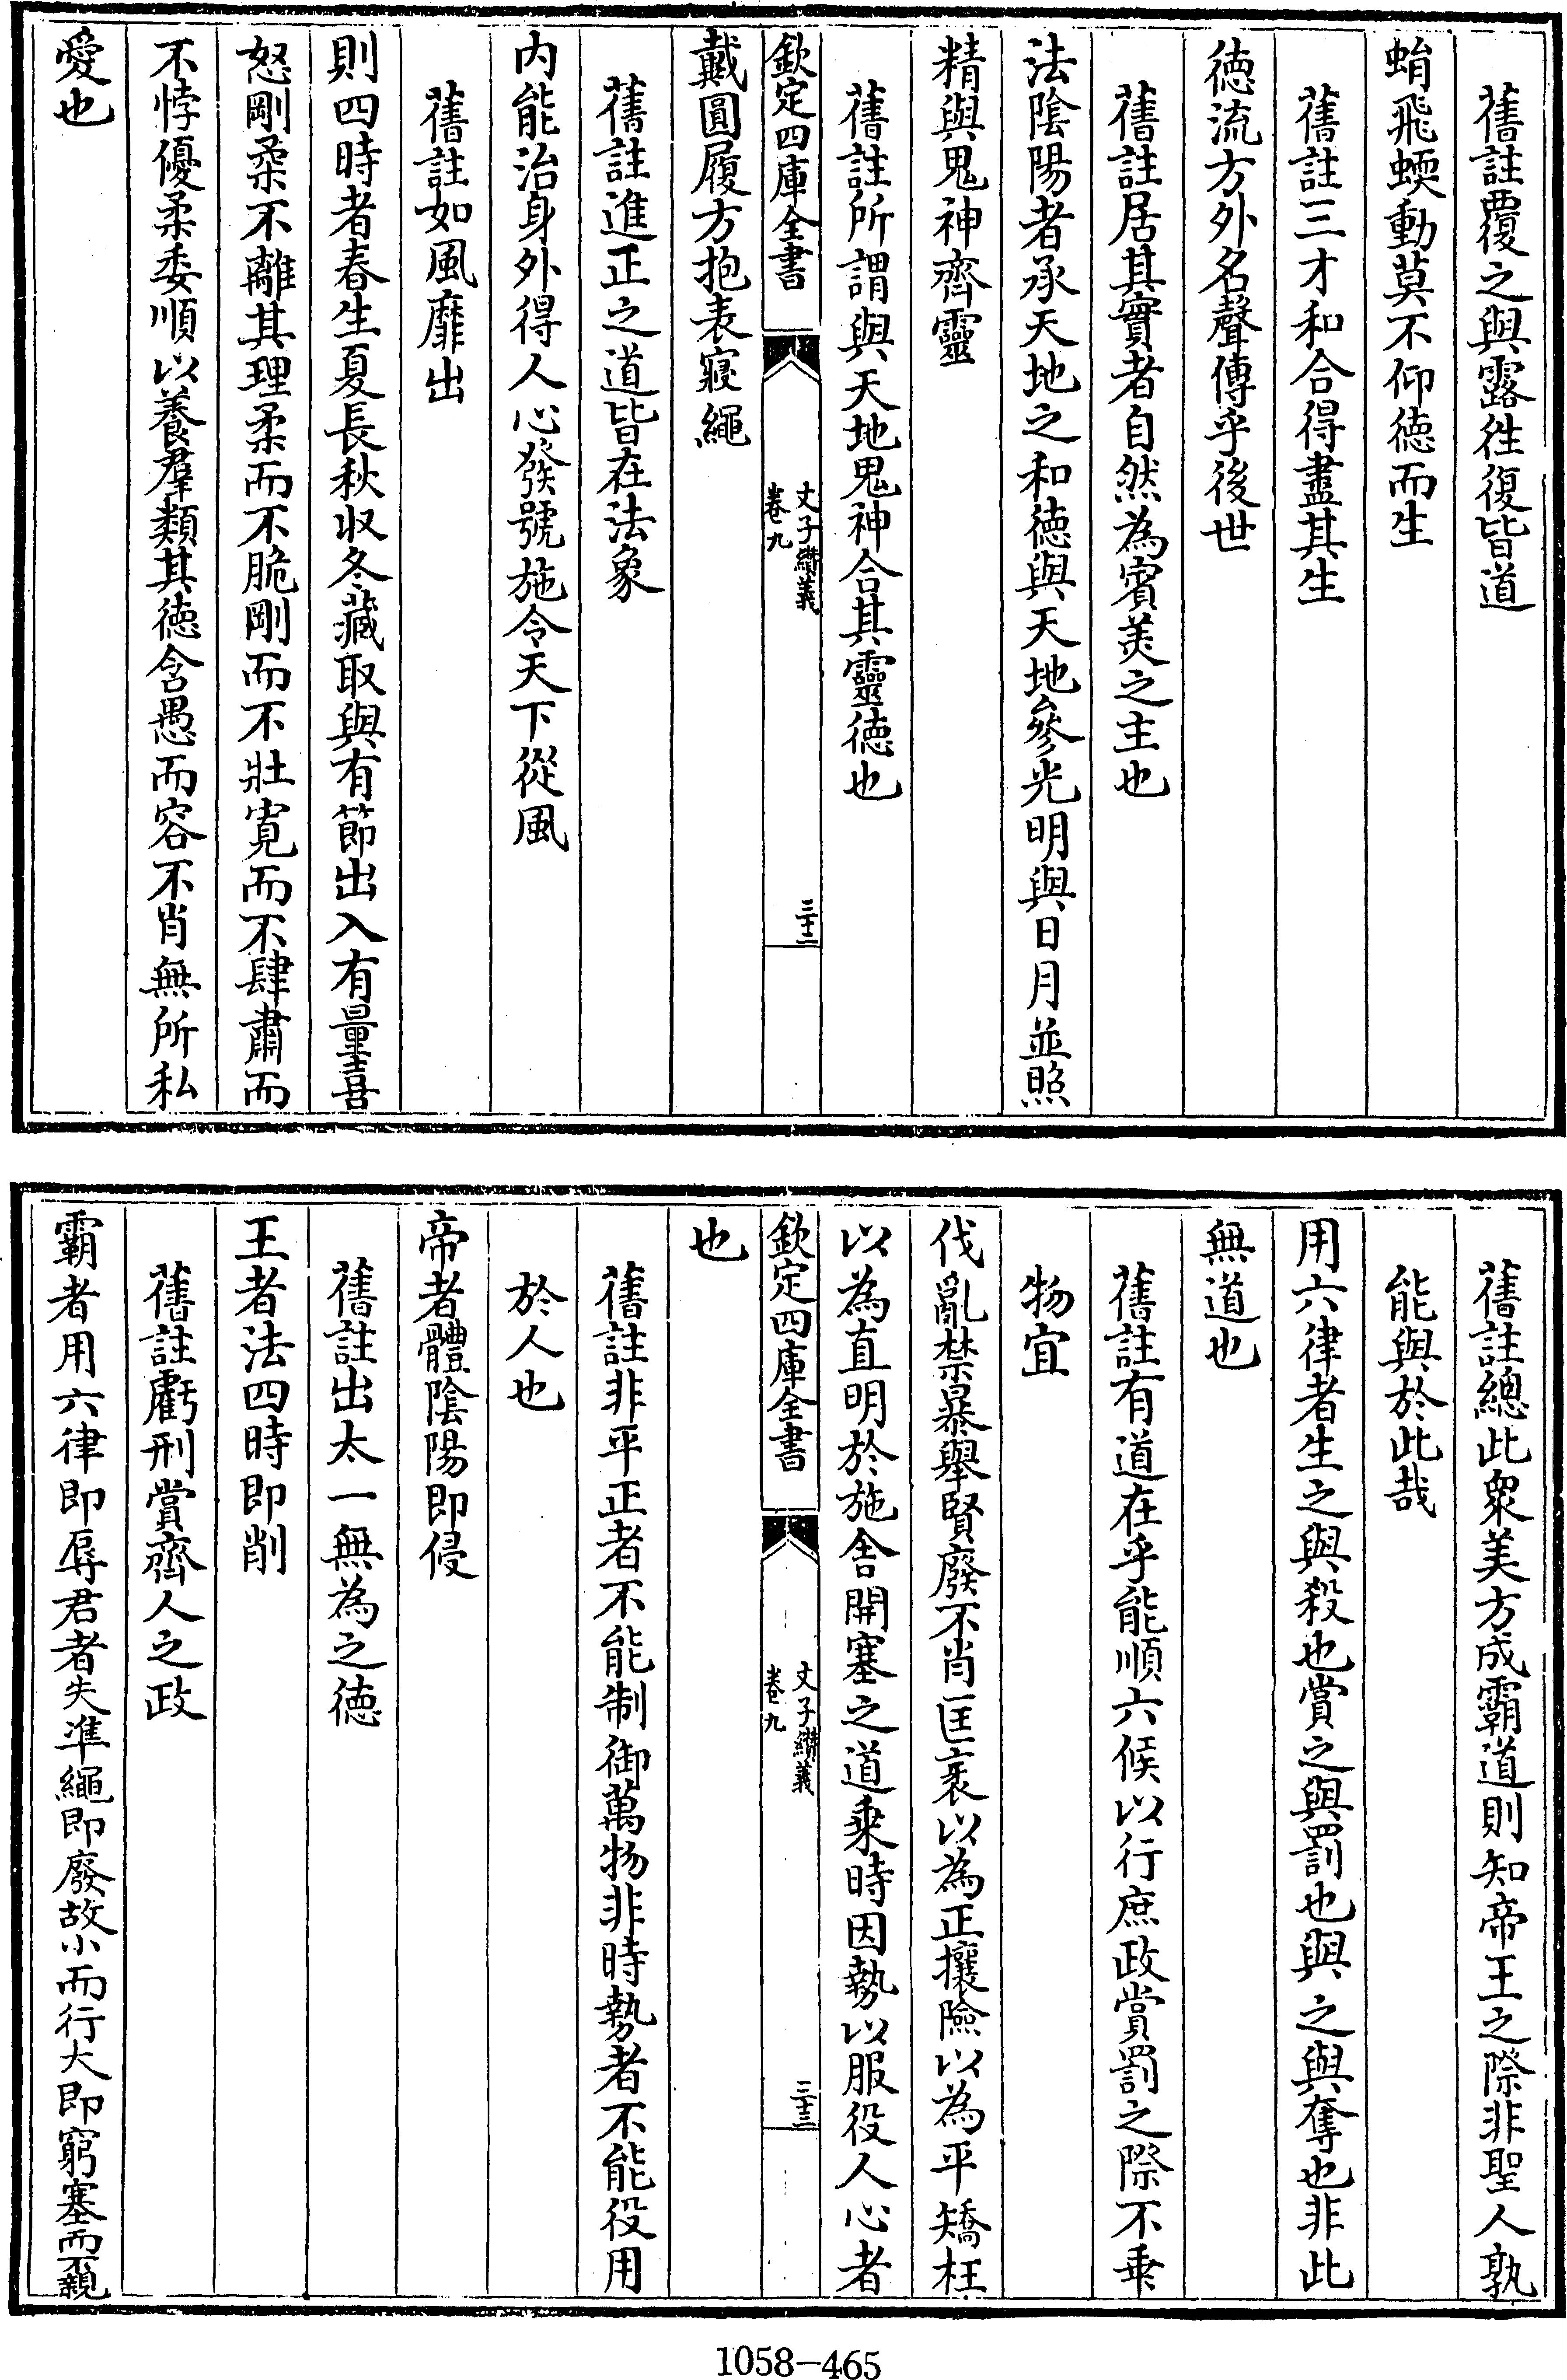 舊註覆之與露徃復皆道
蜎飛蝡動莫不仰徳而生
舊註三才和合得盡其生
徳流方外名聲傳乎後世
舊註居其實者自然為賓美之主也
法陰陽者承天地之和徳與天地參光明與日月並照
精與鬼神齊靈
舊註所謂與天地鬼神合其靈徳也
欽定四庫全書
文子纘義
卷九
三十二
戴圓履方抱表寢繩
舊註進正之道皆在法象
内能治身外得人心發號施令天下從風
舊註如風靡出
則四時者春生夏長秋收冬藏取與有節出入有量喜
怒剛柔不離其理柔而不脆剛而不壯寛而不肆肅而
不悖優柔委順以養羣類其徳含愚而容不肖無所私
愛也
舊註總此衆美方成霸道則知帝王之際非聖人孰
能與於此哉
用六律者生之與殺也賞之與罰也與之與奪也非此
無道也
舊註有道在乎能順六候以行庶政賞罰之際不乖
物宜
伐亂禁暴舉賢廢不肖匡衺以為正攘險以為平矯枉
以為直明於施舍開塞之道乘時因勢以服役人心者
欽定四庫全書
文子纘義
卷九
三十三
也
舊註非平正者不能制御萬物非時勢者不能役用
於人也
帝者體陰陽即侵
舊註出太一無為之徳
王者法四時即削
舊註虧刑賞齊人之政
霸者用六律即辱君者失準繩即廢故小而行大即窮塞而不親
1058-465